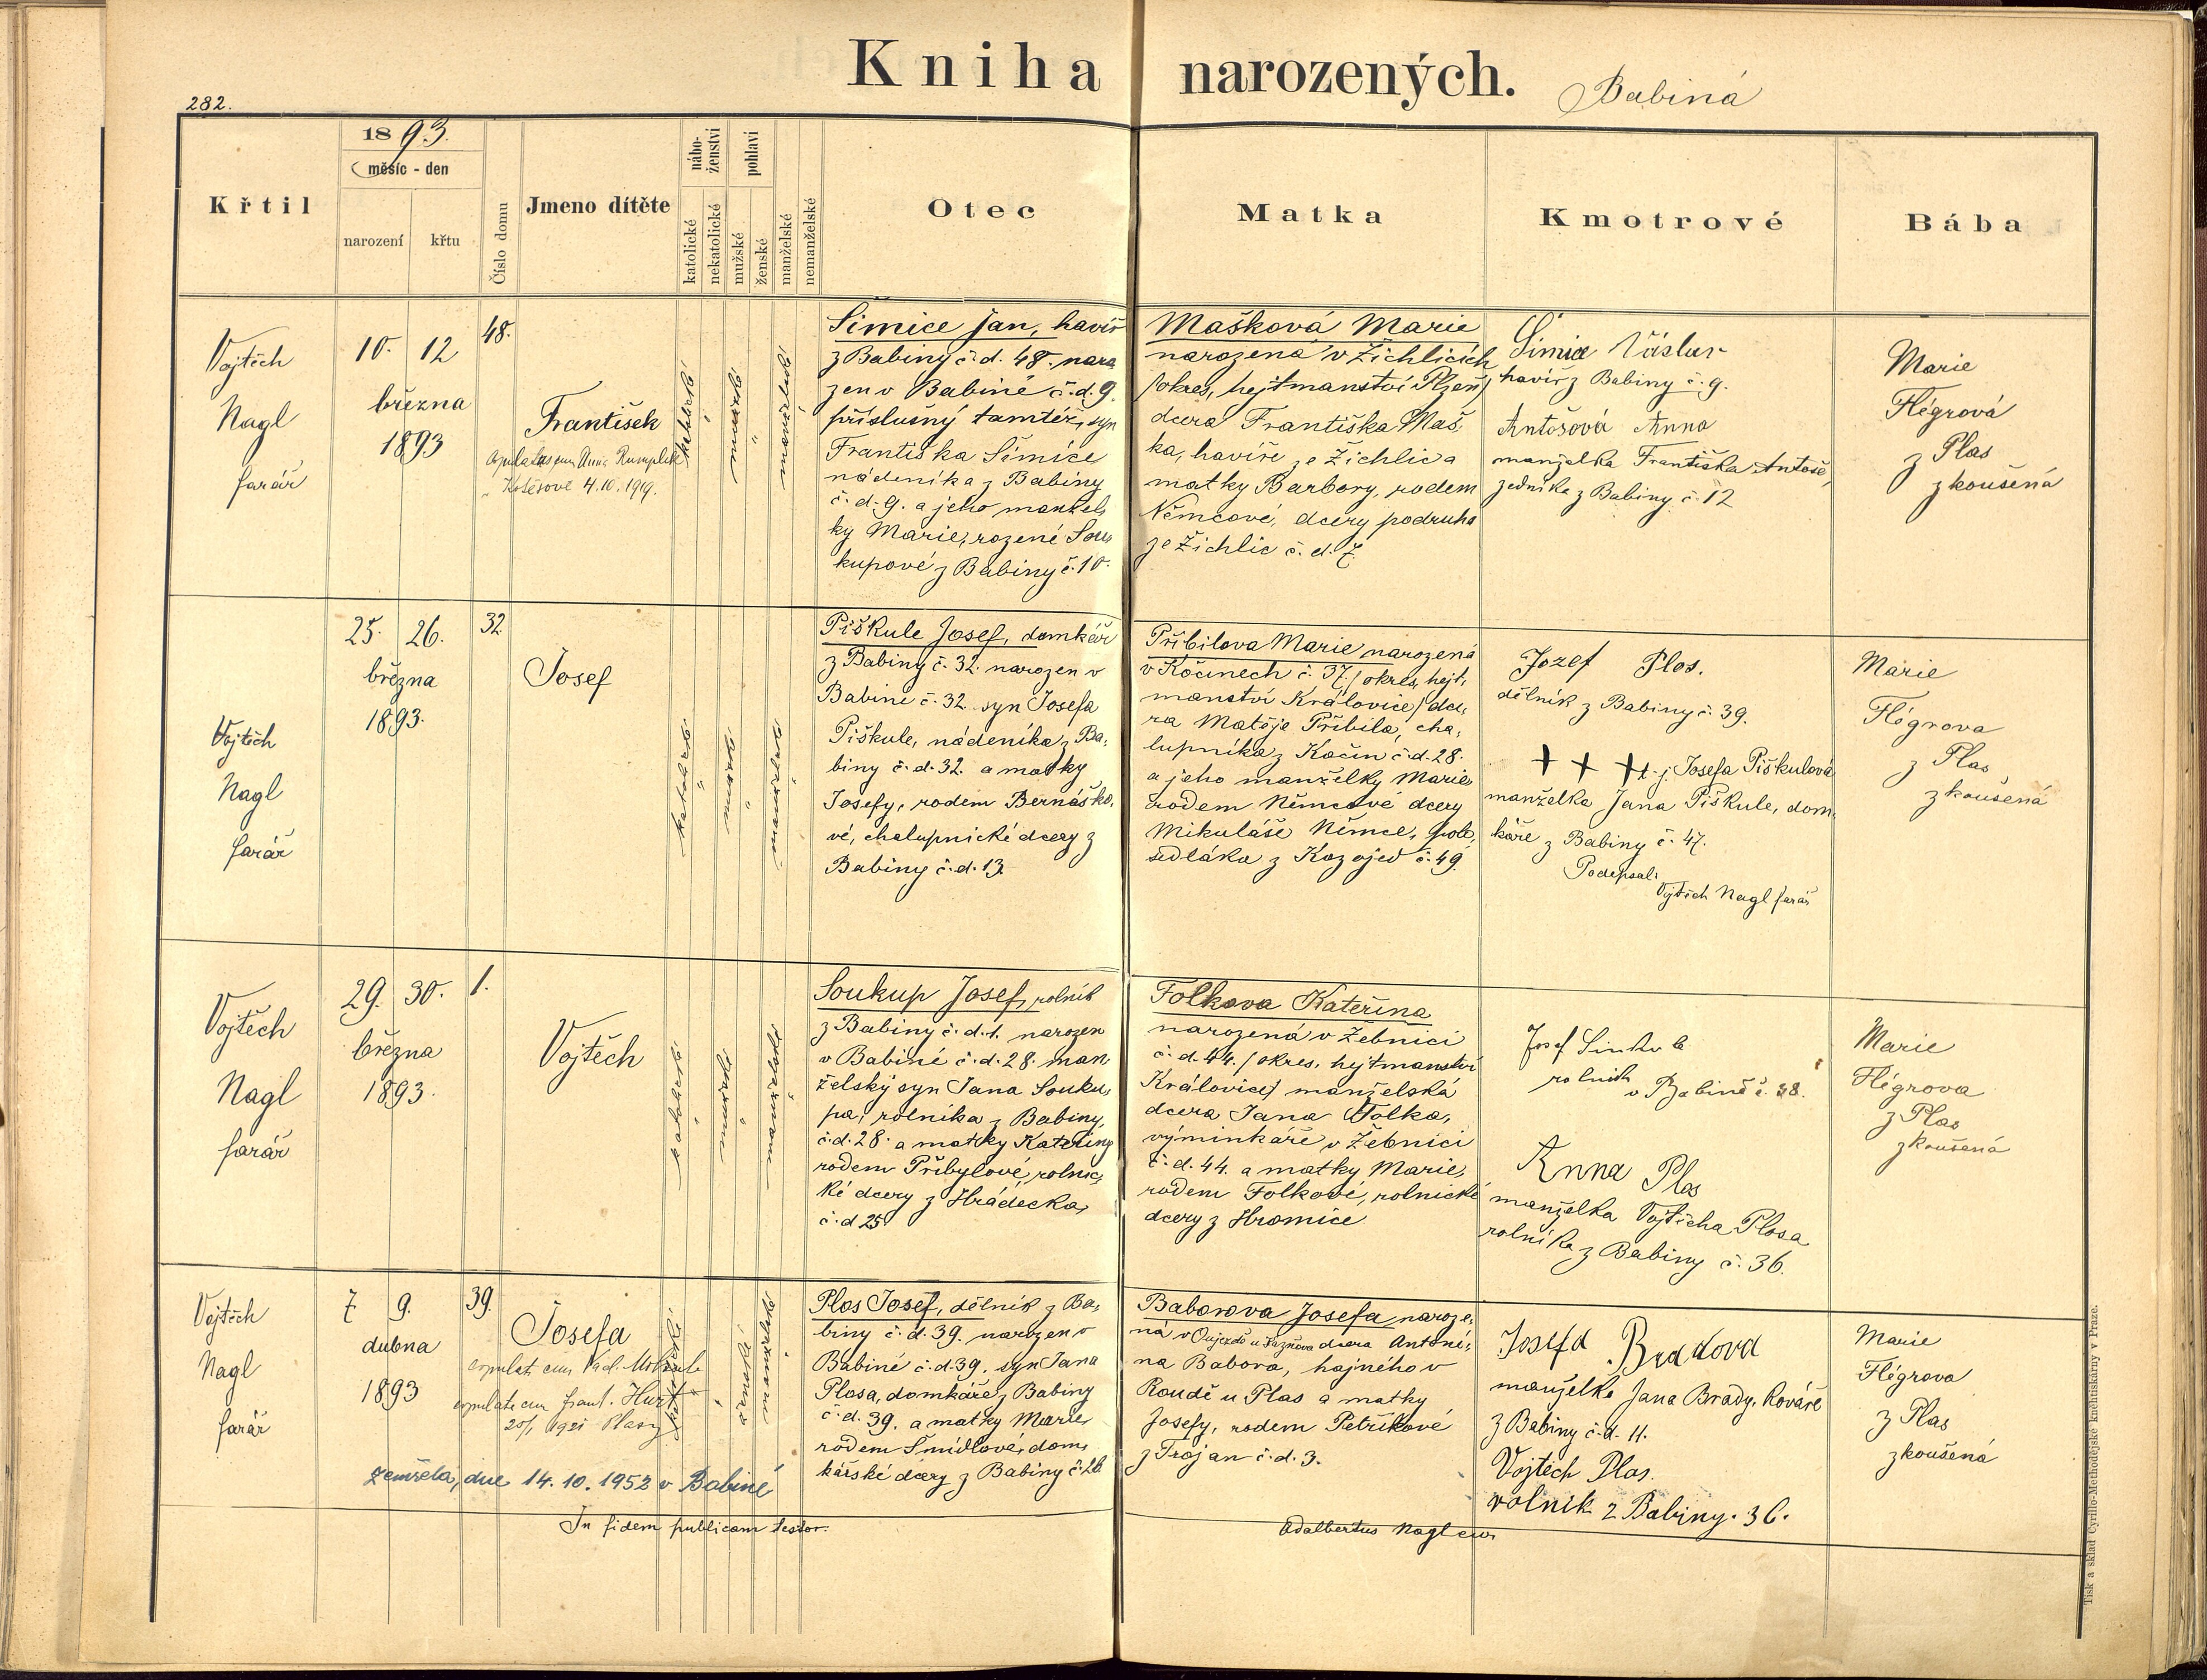 Kniha narozených.
Babiná
282.
Křtil
1893.
měsíc - den
narození
křtu
Číslo domu
Jmeno dítěte
nábo-
ženství
katolické
nekatolické
pohlaví
mužské
ženské
manželské
nemanželské
Otec
Matka
Kmotrové
Bába
Vojtěch
Nagl
farář
10. 12
března
1893
48.
František
4.10.1919.
katolické
mužské
manželské
Šimice Jan, havíř
z Babiny č. d. 48. naro
zen v Babině č. d. 9.
příslušný tamtéž, syn
Františka Šimice
nádeníka z Babiny
č. d. 9. a jeho manžel,
ky Marie, rozené Sou,
kupové z Babiny č. 10.
Mašková Marie
narozená v Žichlicích
(okres, hejtmanství Plzeň)
dcera Františka Maš,
ka, havíře ze Žichlic a
matky Barbory, rodem
Němcové, dcery podruha
ze Žichlic č. d. 7.
Šimice Václav
havíř z Babiny č. 9.
Antošová Anna
manželka Františka Antoše,
zedníka z Babiny č. 12
Marie
Flégrová
z Plas
zkoušená
Vojtěch
Nagl
farář
25. 26.
března
1893.
32.
Josef
katolické
mužské
manželské
Piškule Josef, domkář
z Babiny č. 32. narozen v
Babině č. 32. syn Josefa
Piškule, nádeníka z Ba,
biny č. d. 32. a matky
Josefy, rodem Bernáško,
vé, chalupnické dcery z
Babiny č. d. 13.
Přibilova Marie narozená
v Kočinech č. 37. (okres, hejt,
manství Kralovice) dce,
ra Matěje Přibila, cha,
lupníka z Kočin č. d. 28.
a jeho manželky Marie
rodem Němcové dcery
Mikuláše Němce, polo,
sedláka z Kozojed č. 49.
Jozef Plos.
dělník z Babiny č. 39.
+ + + t. j. Josefa Piškulová
manželka Jana Piškule, dom,
káře z Babiny č. 47.
Podepsal:
Vojtěch Nagl farář
Marie
Flégrova
z Plas
zkoušená
Vojtěch
Nagl
farář
29. 30.
března
1893.
1.
Vojtěch
katolické
mužské
manželské
Soukup Josef, rolník
z Babiny č. d. 1. narozen
v Babině č. d. 28. man
želský syn Jana Souku,
pa, rolníka z Babiny,
č. d. 28. a matky Kateřiny
rodem Přibylové, rolnic,
ké dcery z Hrádecka,
č. d 25
Folkova Kateřina
narozená v Žebnici
č. d. 44. (okres, hejtmanství
Kralovice) manželská
dcera Jana Folka,
výminkáře v Žebnici
č. d. 44. a matky Marie,
rodem Folkové, rolnické
dcery z Hromice
Josef
rolník
v Babině č. 28.
Anna Plos
manželka Vojtěcha Plosa
rolníka z Babiny č. 36.
Marie
Flégrova
z Plas
zkoušená
Vojtěch
Nagl
farář
7 9.
dubna
1893
39.
Josefa
copulata cum
copulata cum frant. Hurt
1921 Plasy
katolické
ženské
manželské
zemřela, dne 14. 10. 1952 v Babině
Plos Josef, dělník z Ba,
biny č. d. 39. narozen v
Babině č. d. 39. syn Jana
Plosa, domkáře z Babiny
č. d. 39. a matky Marie
rodem Šmídlové, dom,
kářské dcery z Babiny č. 26
Baborova Josefa naroze,
ná v Oujezdě u dcera Antoní,
na Babora, hajného v
Roudě u Plas a matky
Josefy, rodem Petříkové
z Trojan č. d. 3.
Josefa Bradova
manželka Jana Brady, kováře
z Babiny č. d. 11.
Vojtěch Plos.
rolník z Babiny. 36.
Marie
Flégrova
z Plas
zkoušená
In fidem publicam testor.
Adalbertus Nagl
Tisk a sklad Cyrillo-Methodějské knihtiskárny v Praze.